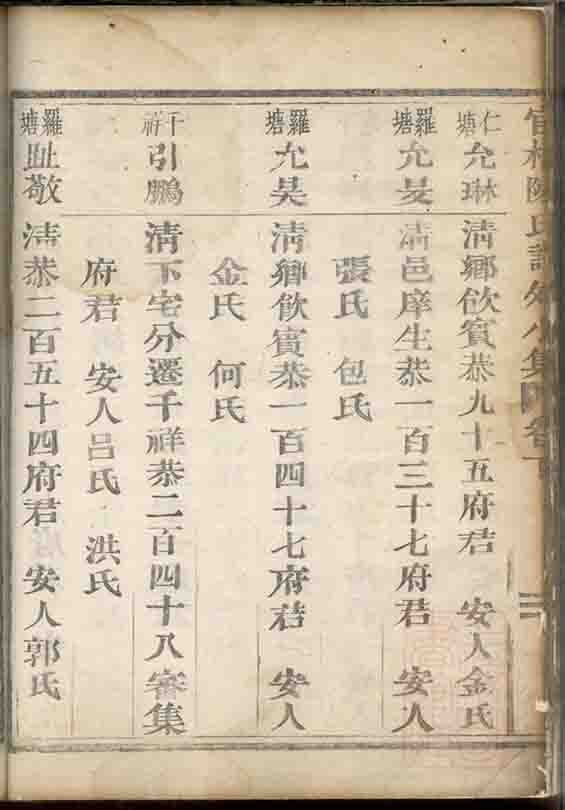 仁塘 允琳 清鄉飲賓恭九十五府君 安人金氏
羅塘 允旻 清邑庠生恭一百三十七府君 安人
張氏 包氏
羅塘 允昊 清鄉飲賓恭一百四十七府君 安人
金氏 何氏
千祥 引鵬 清下宅分遷千祥恭二百四十八審集
府君 安人呂氏 洪氏
羅塘 趾敬 清恭二百五十四府君 安人郭氏